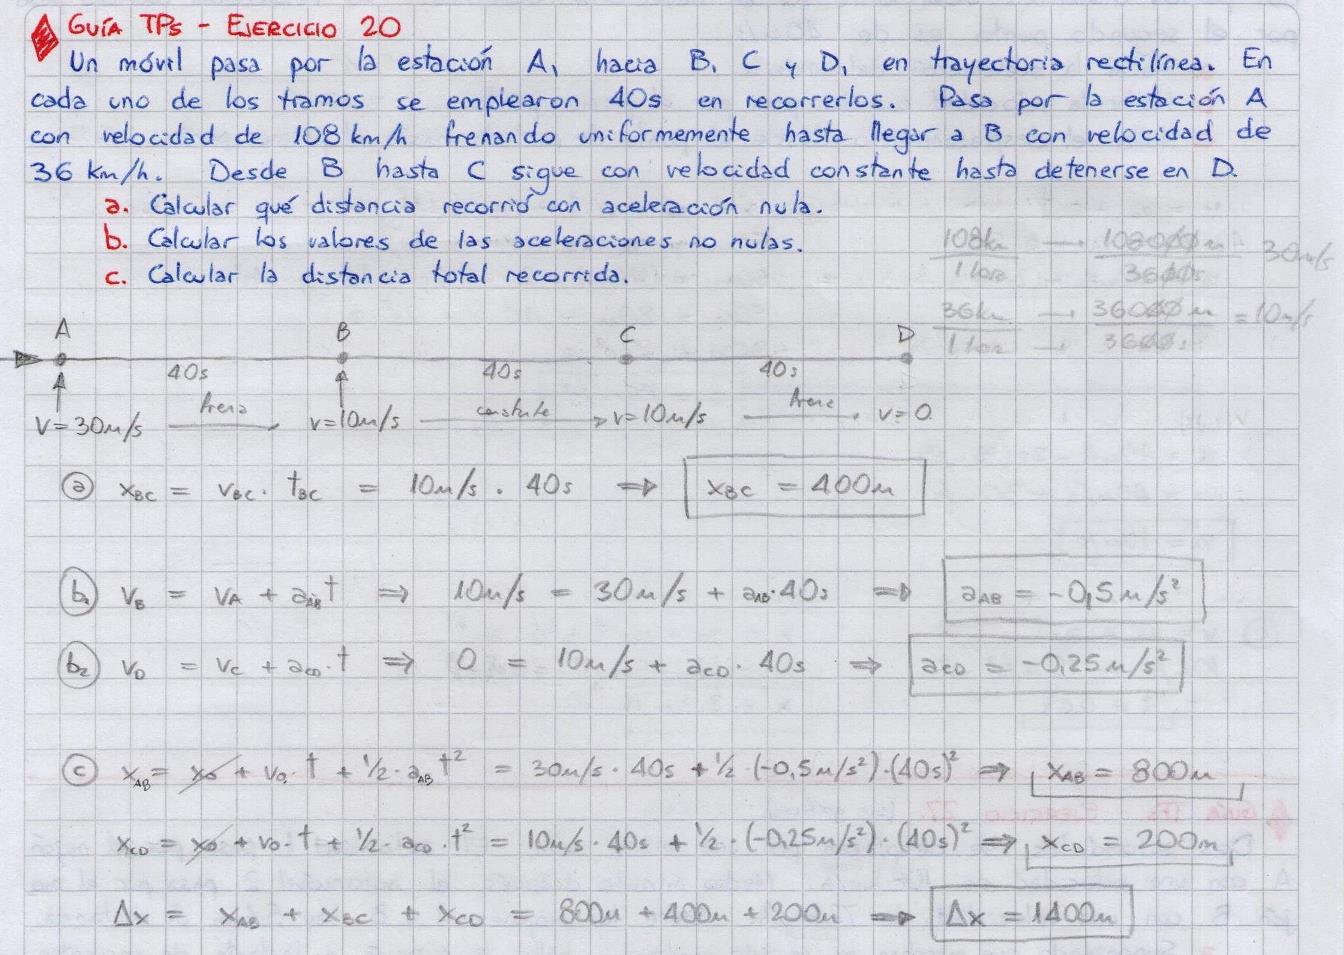 GUÍA TPs - EJERCICIO 20
Un móvil pasa por la estación A, hacia B, C y D, en trayectoria rectilínea. En
cada uno de los tramos se emplearon 40s en recorrerlos. Pasa por la estación A
con velocidad de 108 km/h frenando uniformemente hasta llegar a B con velocidad de
36 km/h. Desde B hasta C sigue con velocidad constante hasta detenerse en D.
a. Calcular qué distancia recorrió con aceleración nula.
b. Calcular los valores de las aceleraciones no nulas.
c. Calcular la distancia total recorrida.
108km/1 hora → 108000m/3600s 30m/s
36km/1 hora → 36000m/3600s = 10m/s
A B C D
40s 40s 40s
V = 30m/s frena v=10m/s constante v=10m/s frena v=0
a x_BC = v_BC . t_BC = 10m/s . 40s ⇒ x_BC = 400m
b1 V_B = V_A + a_AB t ⇒ 10m/s = 30m/s + a_AB . 40s ⇒ a_AB = -0,5 m/s²
b2 V_D = V_C + a_CD . t ⇒ 0 = 10m/s + a_CD . 40s ⇒ a_CD = -0,25 m/s²
c x_AB = x0 + v0 . t + 1/2 . a_AB t² = 30m/s . 40s + 1/2 . (-0,5m/s²) . (40s)² ⇒ x_AB = 800m
x_CD = x0 + v0 . t + 1/2 . a_CD . t² = 10m/s . 40s + 1/2 . (-0,25m/s²) . (40s)² ⇒ x_CD = 200m
Δx = x_AB + x_BC + x_CD = 800m + 400m + 200m ⇒ Δx = 1400m